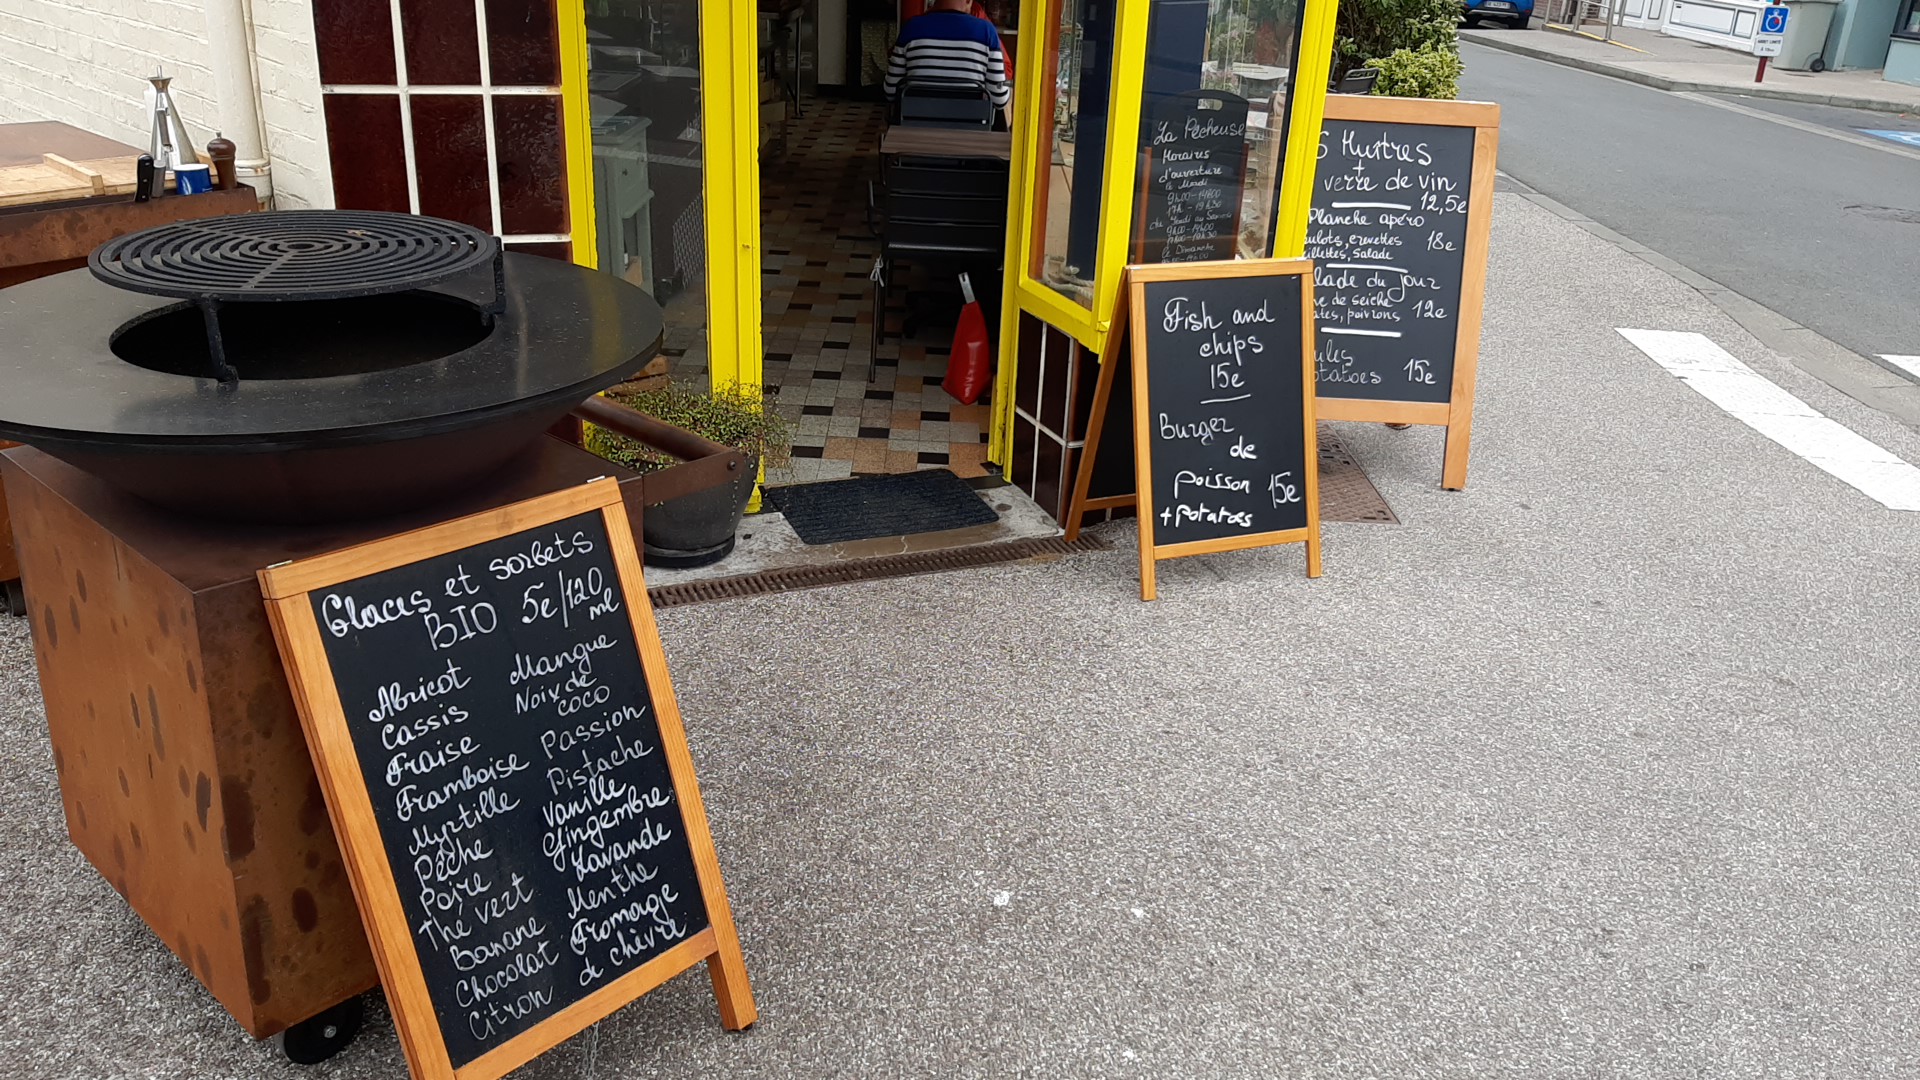 Glaces et sorbets
BIO 5e/120
ml
Abricot
Cassis
Fraise
Framboise
Myrtille
Pêche
Poire
Thé vert
Banane
Chocolat
Citron
Mangue
Noix de
coco
Passion
Pistache
Vanille
Gingembre
Lavande
Menthe
Fromage
de chèvre
Fish and
chips
15e
Burger
de
poisson 15e
+ potatoes
La Pêcheuse
Horaires
d'ouverture
le Mardi
le Dimanche
6 Huîtres
+
verre de vin
12,5e
Planche apéro
crevettes 18e
Salade
du jour
de seiche 12e
poivrons
15e